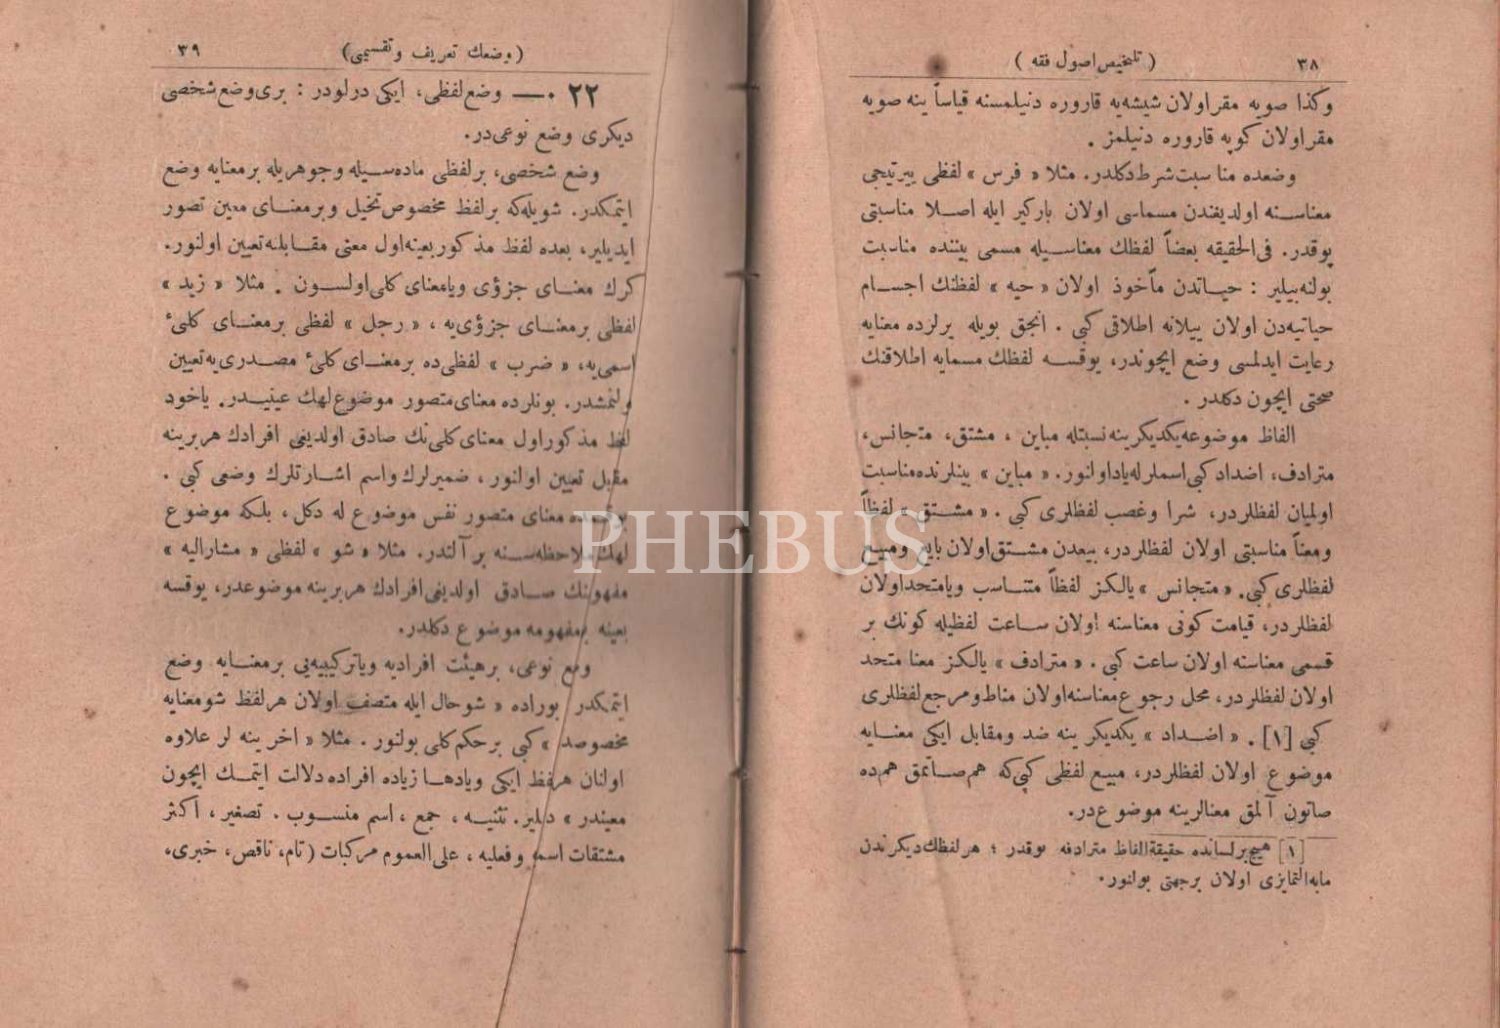 ٣٨ ( تلخيص اصول فقه )
وكذا صويه مقر اولان شيشه‌يه قاروره دنيلمسنه قياساً ينه صويه
مقر اولان كوپه قاروره دنيلمز .
وضعده مناسبت شرط دكلدر. مثلا « فرس » لفظى ييرتيجى
معناسنه اولديغندن مسماسى اولان باركير ايله اصلا مناسبتى
يوقدر. فى‌الحقيقه بعضاً لفظك معناسيله مسمى بيننده مناسبت
بولنه‌بيلير : حياتدن مأخوذ اولان « حيه » لفظنك اجسام
حياتيه‌دن اولان ييلانه اطلاقى كبى . انجق بويله يرلرده معنايه
رعايت ايدلمسى وضع ايچوندر، يوقسه لفظك مسمايه اطلاقنك
صحتى ايچون دكلدر .
الفاظ موضوعه يكديكرينه نسبتله مباين ، مشتق، متجانس،
مترادف، اضداد كبى اسملرله ياد اولنور. « مباين » بينلرنده مناسبت
اولميان لفظلردر، شرا وغصب لفظلرى كبى . « مشتق » لفظاً
ومعناً مناسبتى اولان لفظلردر، بيعدن مشتق اولان بايع ومبيع
لفظلرى كبى. « متجانس » يالكز لفظاً متناسب ويا متحد اولان
لفظلردر، قيامت كونى معناسنه اولان ساعت لفظيله كونك بر
قسمى معناسنه اولان ساعت كبى . « مترادف » يالكز معنا متحد
اولان لفظلردر، محل رجوع معناسنه اولان مناط ومرجع لفظلرى
كبى [١] . « اضداد » يكديكرينه ضد ومقابل ايكى معنايه
موضوع اولان لفظلردر، مبيع لفظى كبى كه هم صاتمق هم ده
صاتون آلمق معنالرينه موضوع در.
[١] هيچ بر لسانده حقيقة الفاظ مترادفه يوقدر ؛ هر لفظك ديكرندن
مابه‌التمايزى اولان بر جهتى بولنور.
(وضعك تعريف وتقسيمى) ٣٩
٢٢ — وضع لفظى، ايكى درلودر : برى وضع شخصى
ديكرى وضع نوعى در.
وضع شخصى، بر لفظى ماده‌سيله وجوهريله بر معنايه وضع
ايتمكدر. شويله‌كه بر لفظ مخصوص تخيل وبر معناى معين تصور
ايديلير، بعده لفظ مذكور بعينه اول معنى مقابلنه تعيين اولنور.
كرك معناى جزؤى ويا معناى كلى اولسون . مثلا « زيد »
لفظى بر معناى جزؤى‌يه ، « رجل » لفظى بر معناى كلئ
اسمى‌يه، « ضرب » لفظى‌ده بر معناى كلئ مصدرى‌يه تعيين
ولنمشدر. بونلرده معناى متصور موضوع لهك عينيدر. ياخود
لفظ مذكور اول معناى كلى‌نك صادق اولديغى افرادك هر برينه
مقابل تعيين اولنور ، ضميرلرك واسم اشارتلرك وضعى كبى .
معناى متصور نفس موضوع له دكل ، بلكه موضوع
لهك ملاحظه‌سنه بر آلتدر. مثلا « شو » لفظى « مشاراليه »
مفهومنك صادق اولديغى افرادك هر برينه موضوعدر، يوقسه
بعينه بمفهومه موضوع دكلدر.
وضع نوعى، بر هيئت افراديه ويا تركيبيه‌يى بر معنايه وضع
ايتمكدر بوراده « شو حال ايله متصف اولان هر لفظ شو معنايه
مخصوصدر » كبى بر حكم كلى بولنور . مثلا « اخرينه لر علاوه
اولنان هر لفظ ايكى ويا دها زياده افراده دلالت ايتمك ايچون
معيندر » دينلير. تثنيه ، جمع ، اسم منسوب . تصغير ، اكثر
مشتقات اسميه وفعليه ، على‌العموم مركبات (تام، ناقص، خبرى،
PHEBUS